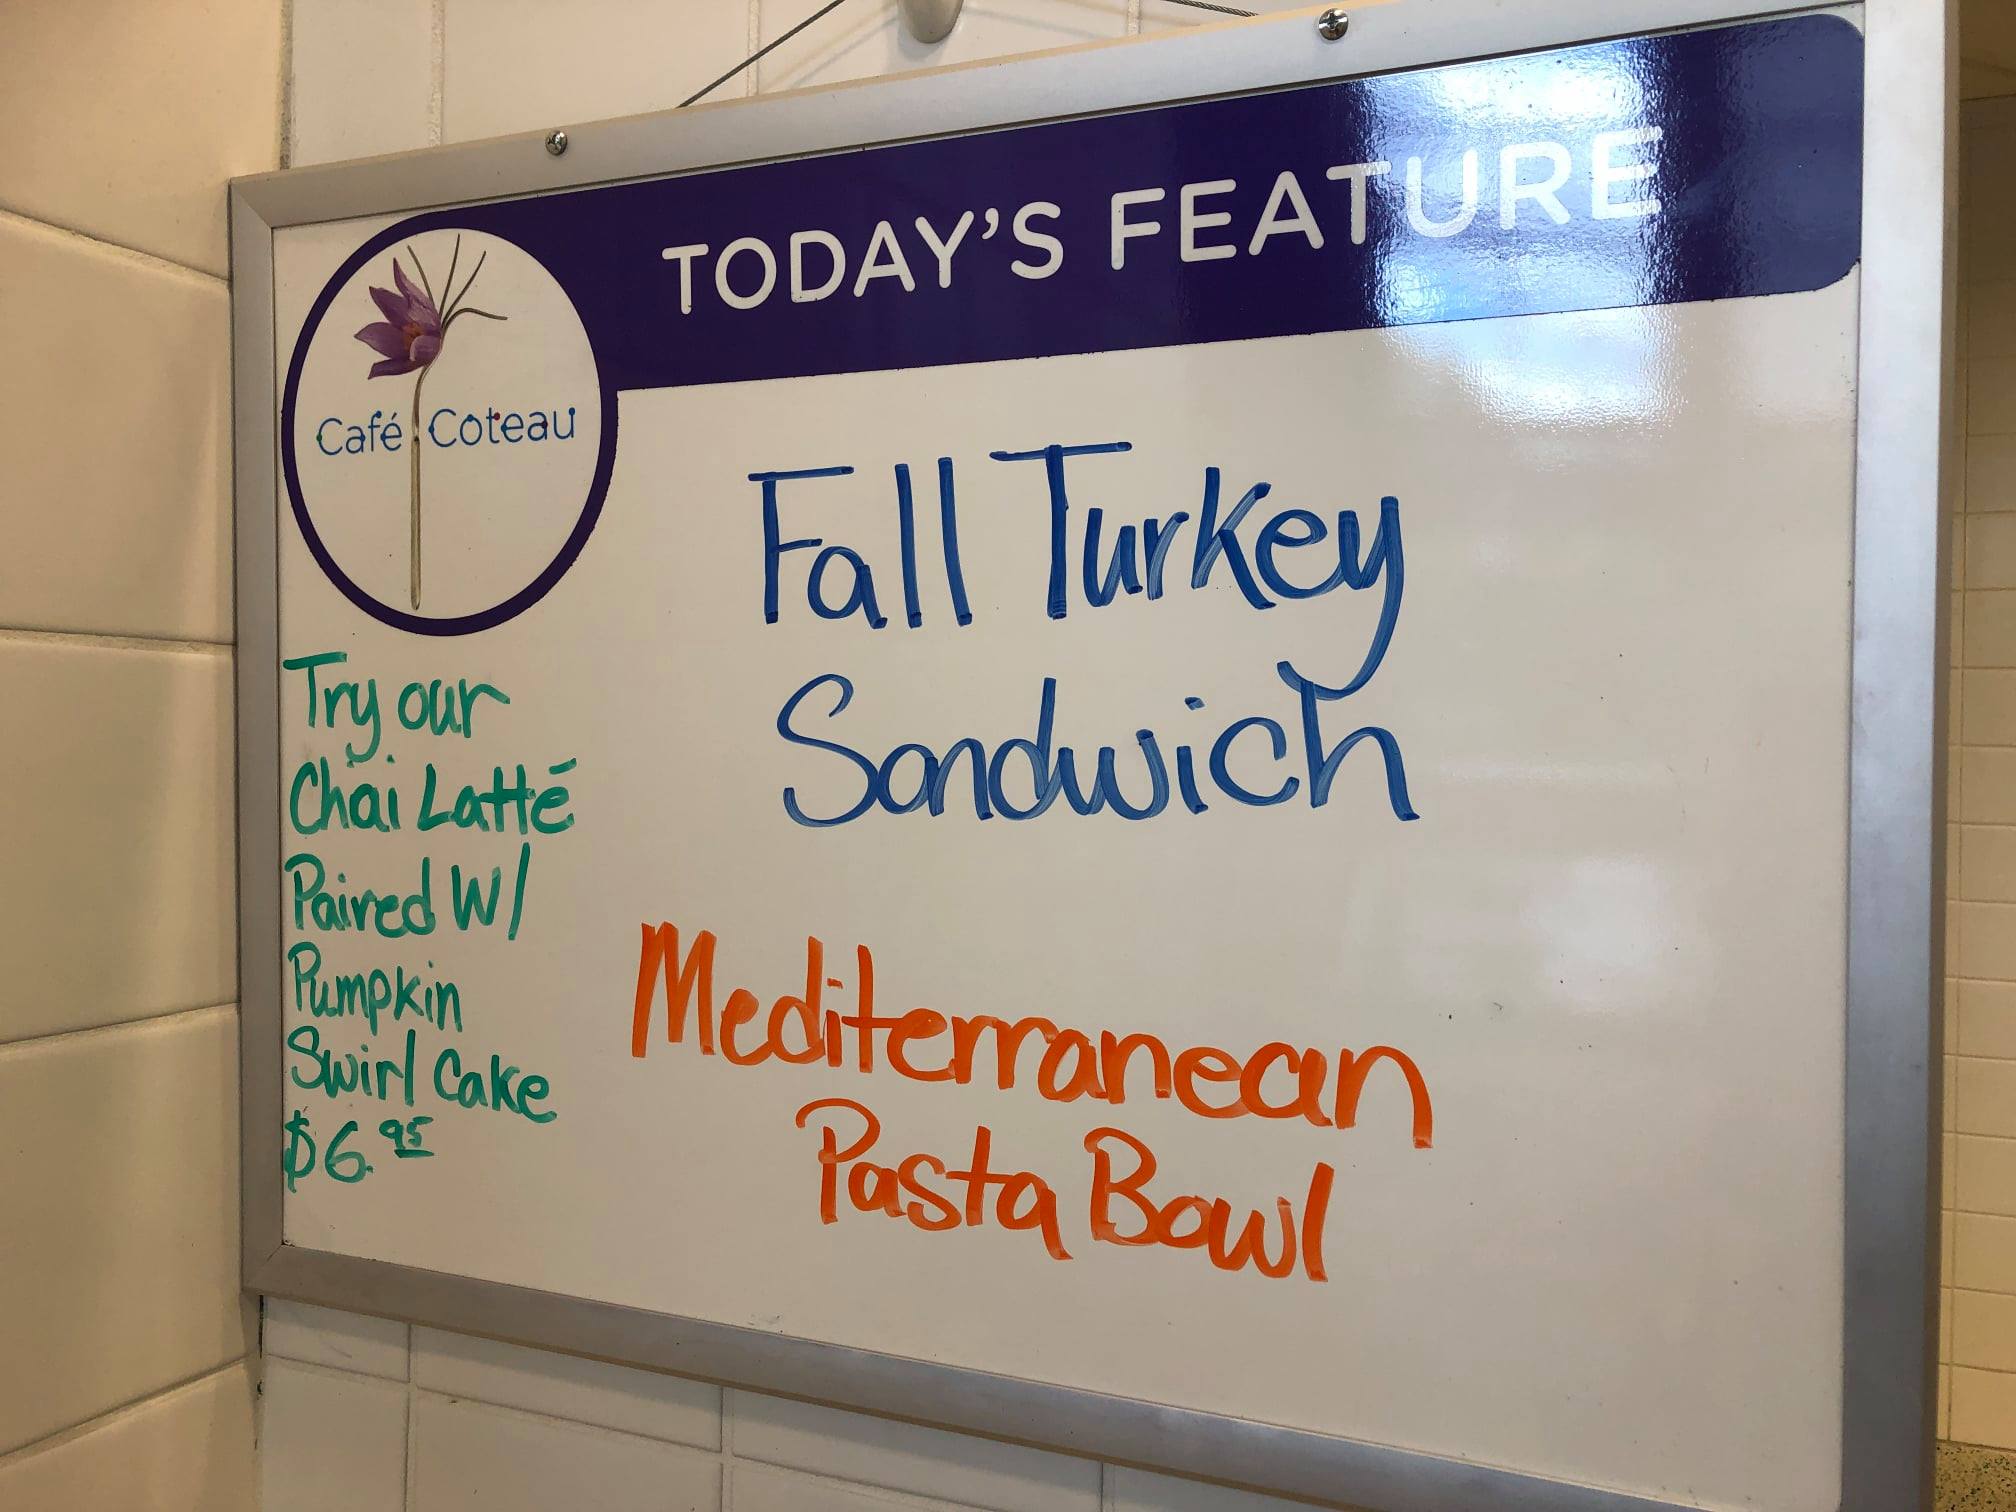 TODAY'S FEATURE
Café Coteau
Fall Turkey
Sandwich
Mediterranean
Pasta Bowl
Try our
Chai Latté
Paired W/
Pumpkin
Swirl Cake
$6.95